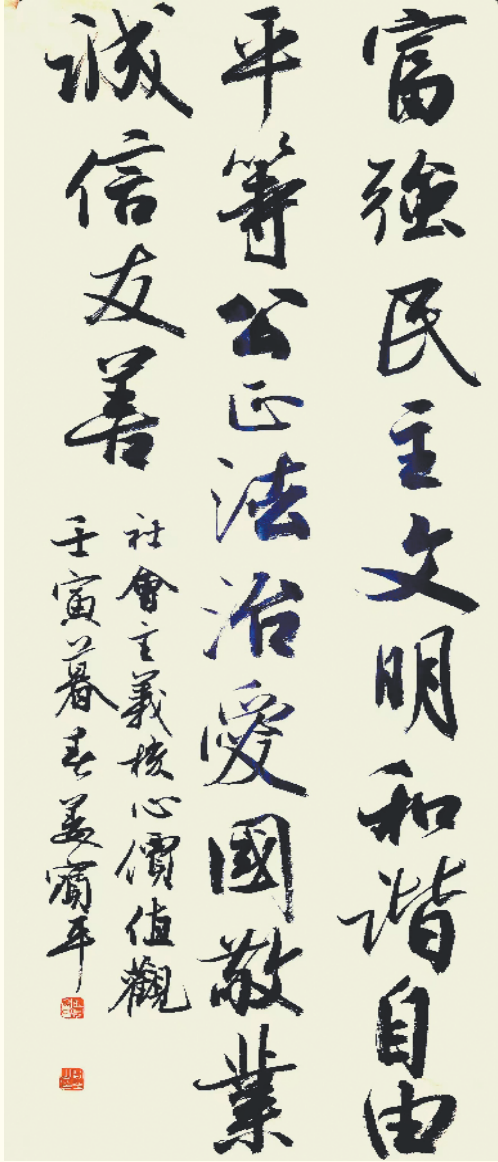 富強民主文明和谐自由
平等公正法治愛國敬業
诚信友善
社會主義核心價值觀
壬寅暮春姜寳平